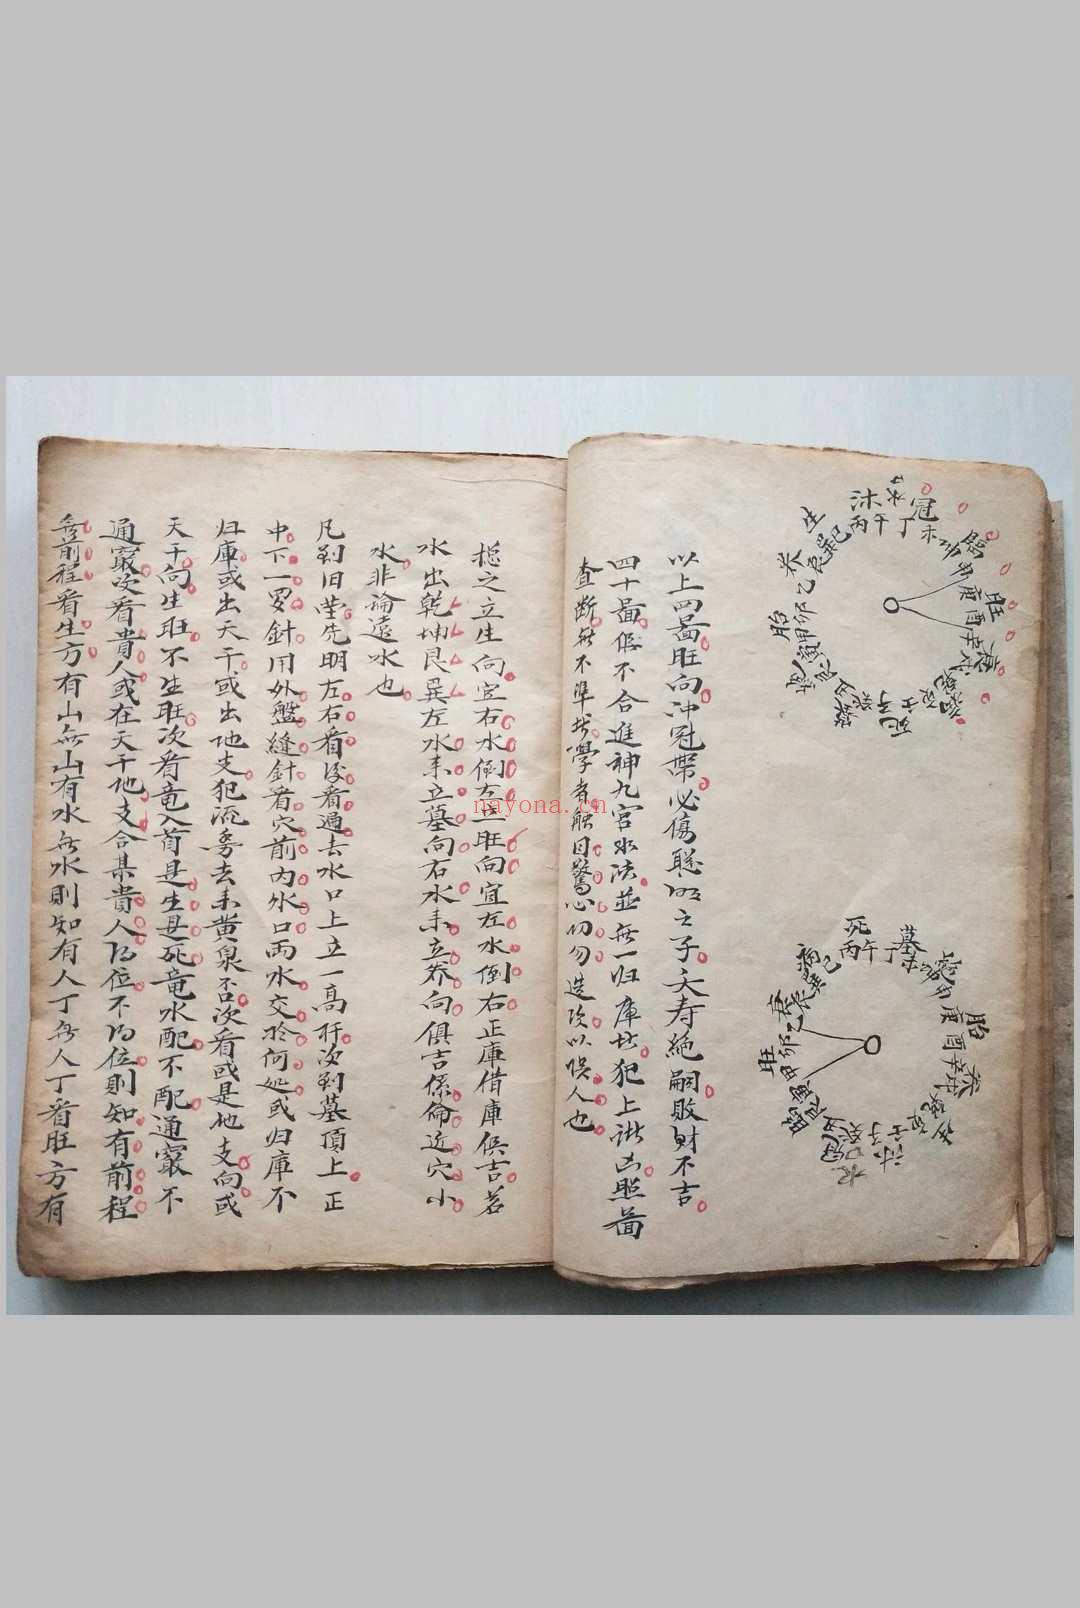 以上四啚旺向冲冠帶必傷聰明之子夭寿絶嗣敗財不吉
四十啚俱不合進神九宮水法並無一归庫皆犯上誹凶照啚
查断無不準皆學者触目驚心切勿造次以悞人也
捴之立生向宜右水倒左立旺向宜左水倒右正庫借庫俱吉若
水出乾坤艮巽左水来立墓向右水来立养向俱吉係倫近穴小
水非論遠水也
凡到旧茔先明左右看後看過去水口上立一高杆次到墓頂上正
中下一罗針用外盤縫針看穴前内外口両水交於何処或归庫不
归庫或出天干或出地支犯流旁去来黄泉否次看或是地支向或
天干向生旺不生旺次看竜入首是生是死竜水配不配通竅不
通竅次看貴人或在天干地支合某貴人得位不得位則知有前程
無前程看生方有山無山有水無水則知有人丁無人丁看旺方有
生
沐
冠
臨
旺
衰
死
胎
养
丙午丁
巽巳
庚酉辛戌
乙卯甲
壬子
死
丙午丁
墓
胎
养
沐
旺
病
庚酉辛戌
乙卯甲
壬子
水口
nayona.cn